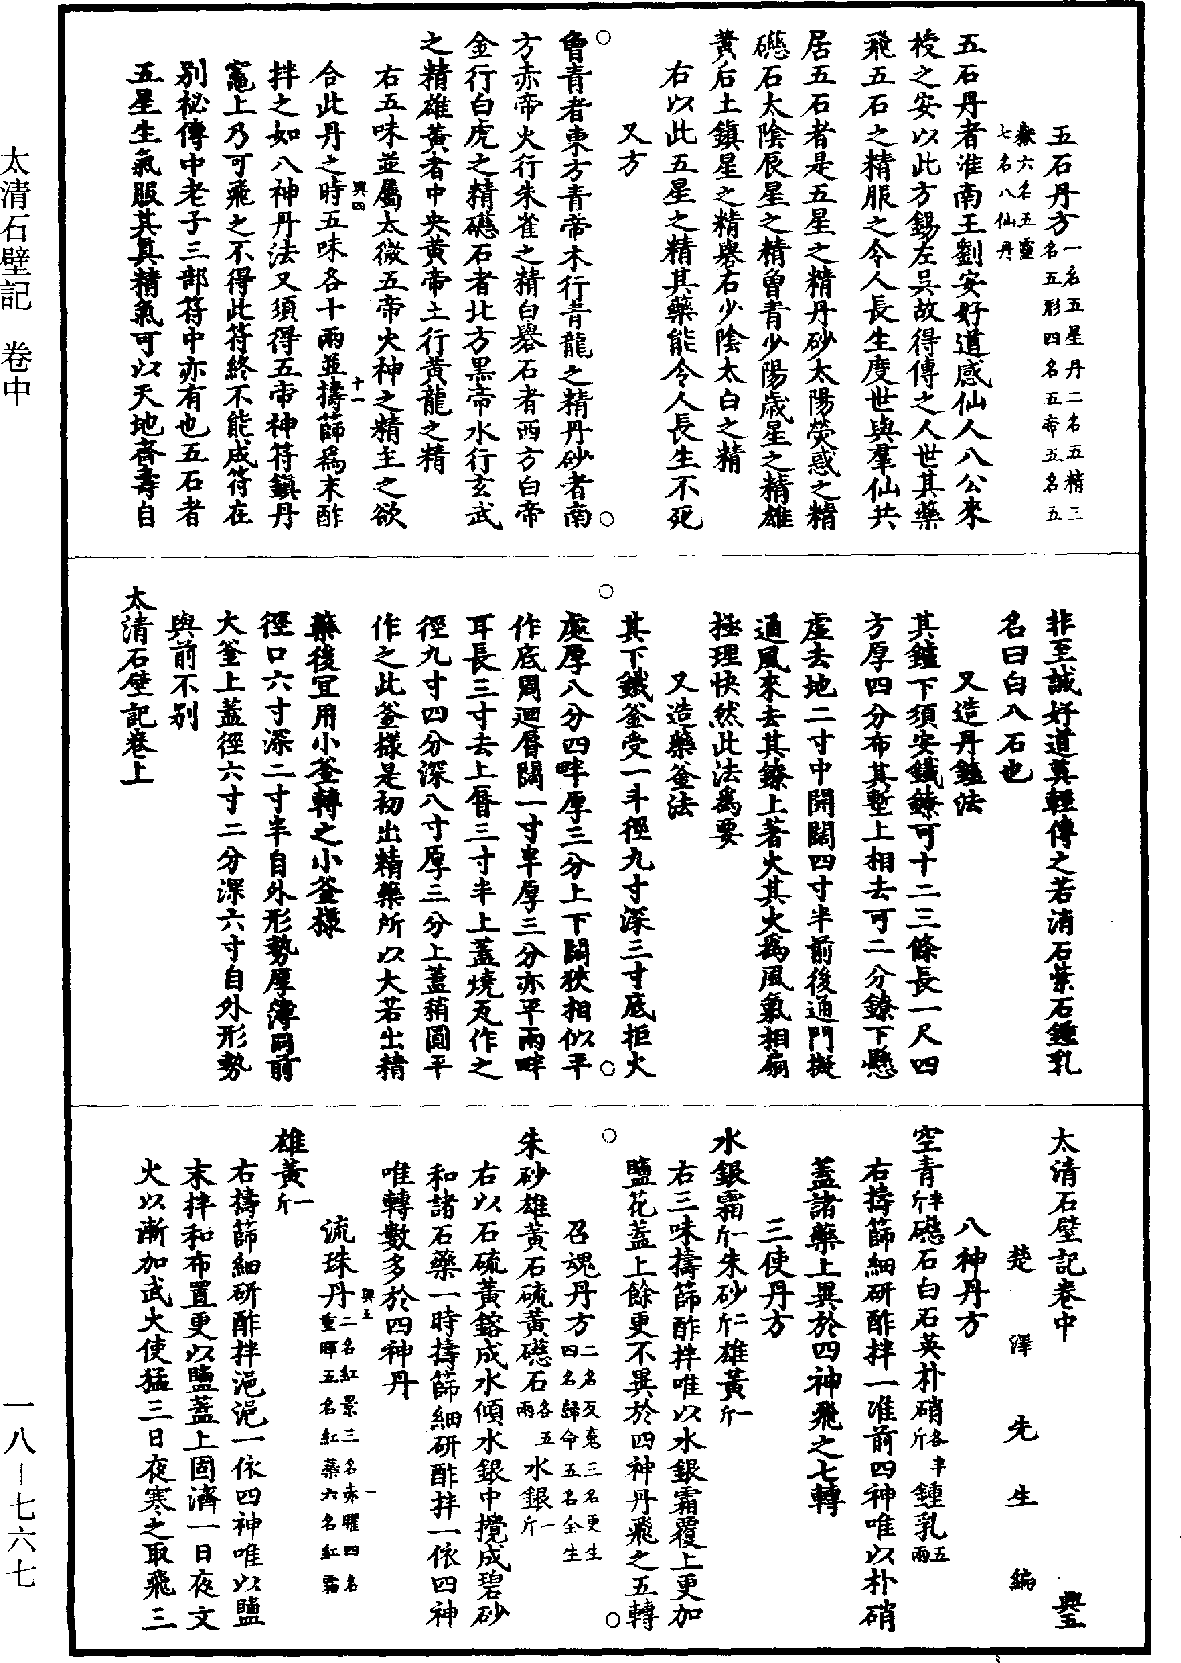 太清石壁記　卷中
一八－七六七
五石丹方一名五星丹二名五精三名五形四名五帝五名五
嶽六名五靈七名八仙丹
五石丹者淮南王劉安好道感仙人八公來
授之安以此方錫左吳故得傳之人世其藥
飛五石之精服之令人長生度世與羣仙共
居五石者是五星之精丹砂太陽熒惑之精
礠石太陰辰星之精曾青少陽歲星之精雄
黃后土鎮星之精礜石少陰太白之精
右以此五星之精其藥能令人長生不死
又方
曾青者東方青帝木行青龍之精丹砂者南
方赤帝火行朱雀之精白礜石者西方白帝
金行白虎之精礠石者北方黑帝水行玄武
之精雄黃者中央黃帝土行黃龍之精
右五味並屬太微五帝火神之精主之欲
興四
十一
合此丹之時五味各十兩並擣篩爲末酢
拌之如八神丹法又須得五帝神符鎮丹
竈上乃可飛之不得此符終不能成符在
別秘傳中老子三部符中亦有也五石者
五星生氣服其真精氣可以天地齊壽自
非至誠好道莫輕傳之若消石紫石鍾乳
名曰白八石也
又造丹鑪法
其鑪下須安鐵鐐可十二三條長一尺四
方厚四分布其塹上相去可二分鐐下懸
虛去地二寸中開闊四寸半前後通門擬
通風來去其鐐上著火其火爲風氣相扇
極理快然此法爲要
又造藥釜法
其下鐵釜受一斗徑九寸深三寸底拒火
處厚八分四畔厚三分上下闊狹相似平
作底周迴脣闊一寸半厚三分亦平兩畔
耳長三寸去上脣三寸半上蓋燒瓦作之
徑九寸四分深八寸厚三分上蓋稍圓平
作之此釜樣是初出精藥所以大若出精
藥後宜用小釜轉之小釜樣
徑口六寸深二寸半自外形勢厚薄同前
大釜上蓋徑六寸二分深六寸自外形勢
與前不别
太清石壁記卷上
太清石壁記卷中　興五
楚澤先生編
八神丹方
空青半斤礠石白石英朴硝各半斤鍾乳五兩
右擣篩細研酢拌一准前四神唯以朴硝
蓋諸藥上異於四神飛之七轉
三使丹方
水銀霜一斤朱砂二斤雄黃一斤
右三味擣篩酢拌唯以水銀霜覆上更加
鹽花蓋上餘更不異於四神丹飛之五轉
召魂丹方二名反魂三名更生四名歸命五名全生
朱砂雄黃石硫黃礠石各五兩水銀一斤
右以石硫黃鎔成水傾水銀中攪成碧砂
和諸石藥一時擣篩細研酢拌一依四神
唯轉數多於四神丹
興五
一
流珠丹二名紅景三名赤曜四名重暉五名紅藥六名紅霜
雄黃一斤
右擣篩細研酢拌浥浥一依四神唯以鹽
末拌和布置更以鹽蓋上固濟一日夜文
火以漸加武火使猛三日夜寒之取飛三